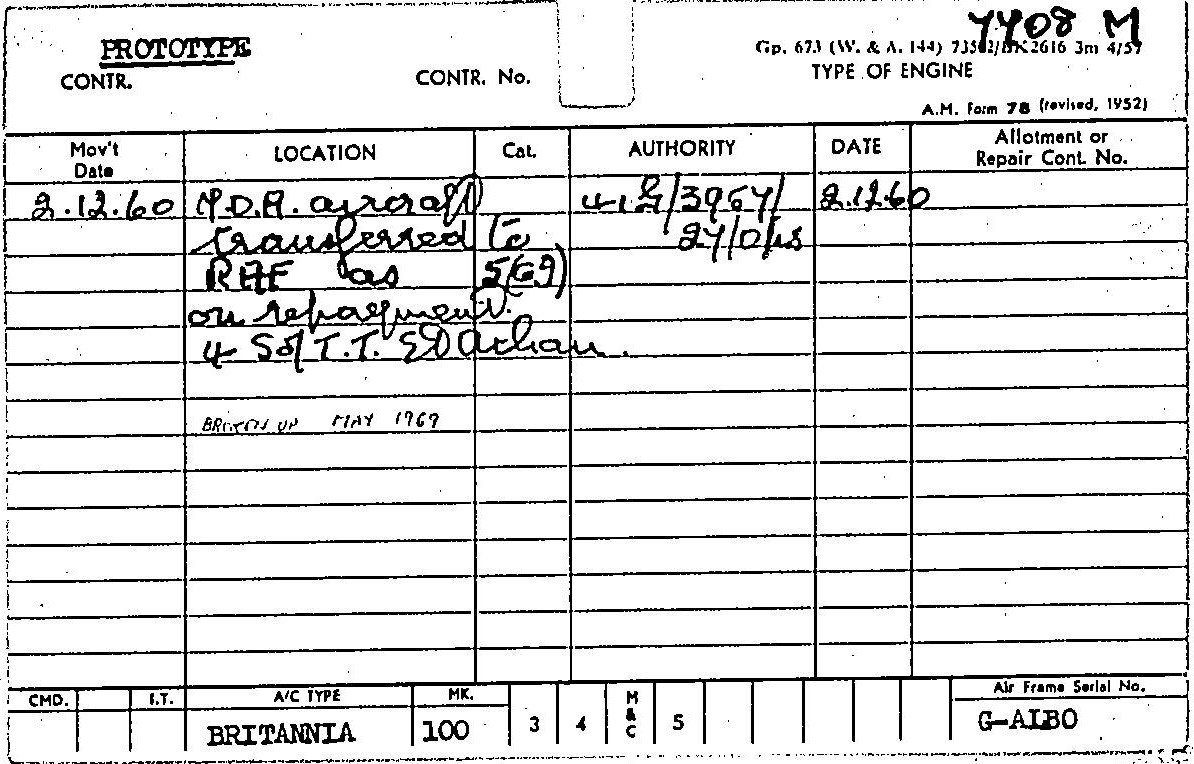 7708 M
PROTOTYPE
Gp. 673 (W. & A. 144) 73502/BK2616 3m 4/57
CONTR.
CONTR. No.
TYPE OF ENGINE
A.M. Form 78 (revised, 1952)
Mov't Date
LOCATION
Cat.
AUTHORITY
DATE
Allotment or Repair Cont. No.
2.12.60 M.D.A. aircraft 2.12.60
transferred to
RAF as 5(G9)
on repayment.
4 S of T.T. St Athan.
BROKEN UP MAY 1969
CMD.
I.T.
A/C TYPE
MK.
Air Frame Serial No.
BRITANNIA
100
3
4
M & C
5
G-ALBO